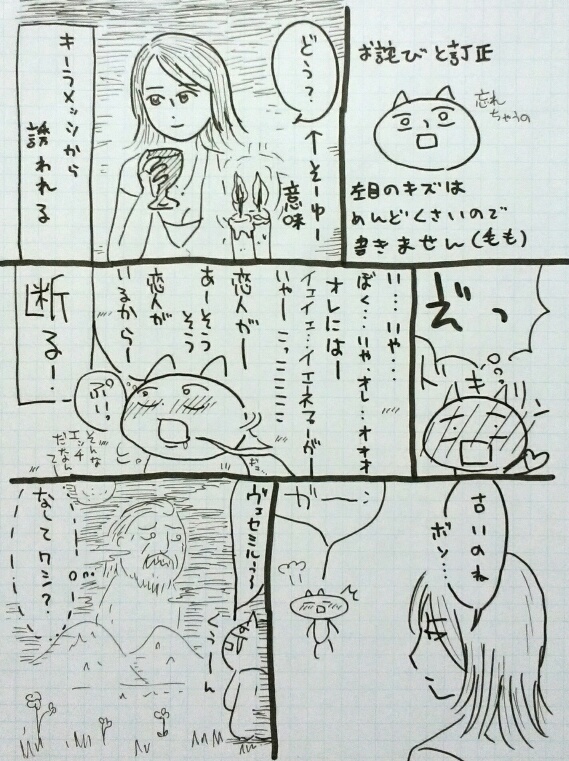 お詫びと訂正
忘れ
ちゃうの
左目のキズは
めんどくさいので
書きません(もも)
どう?
↑そーゆー
意味
キーラメッツから
誘われる
ぞっ
ドキ
ン
い…いや…
ぼく…いや、オレ…オオオ
オレにはー
イェイェ…イエネファーがー
いやーこっここここ
恋人がー
あーそう
そう
恋人が
いるからー
断るー…
ぷいっ
そんな
エッチ
だなんて
古いのね
ボソ…
ガーーン
ヴェセミルぅ〜
くぅーん
なしてワシ?